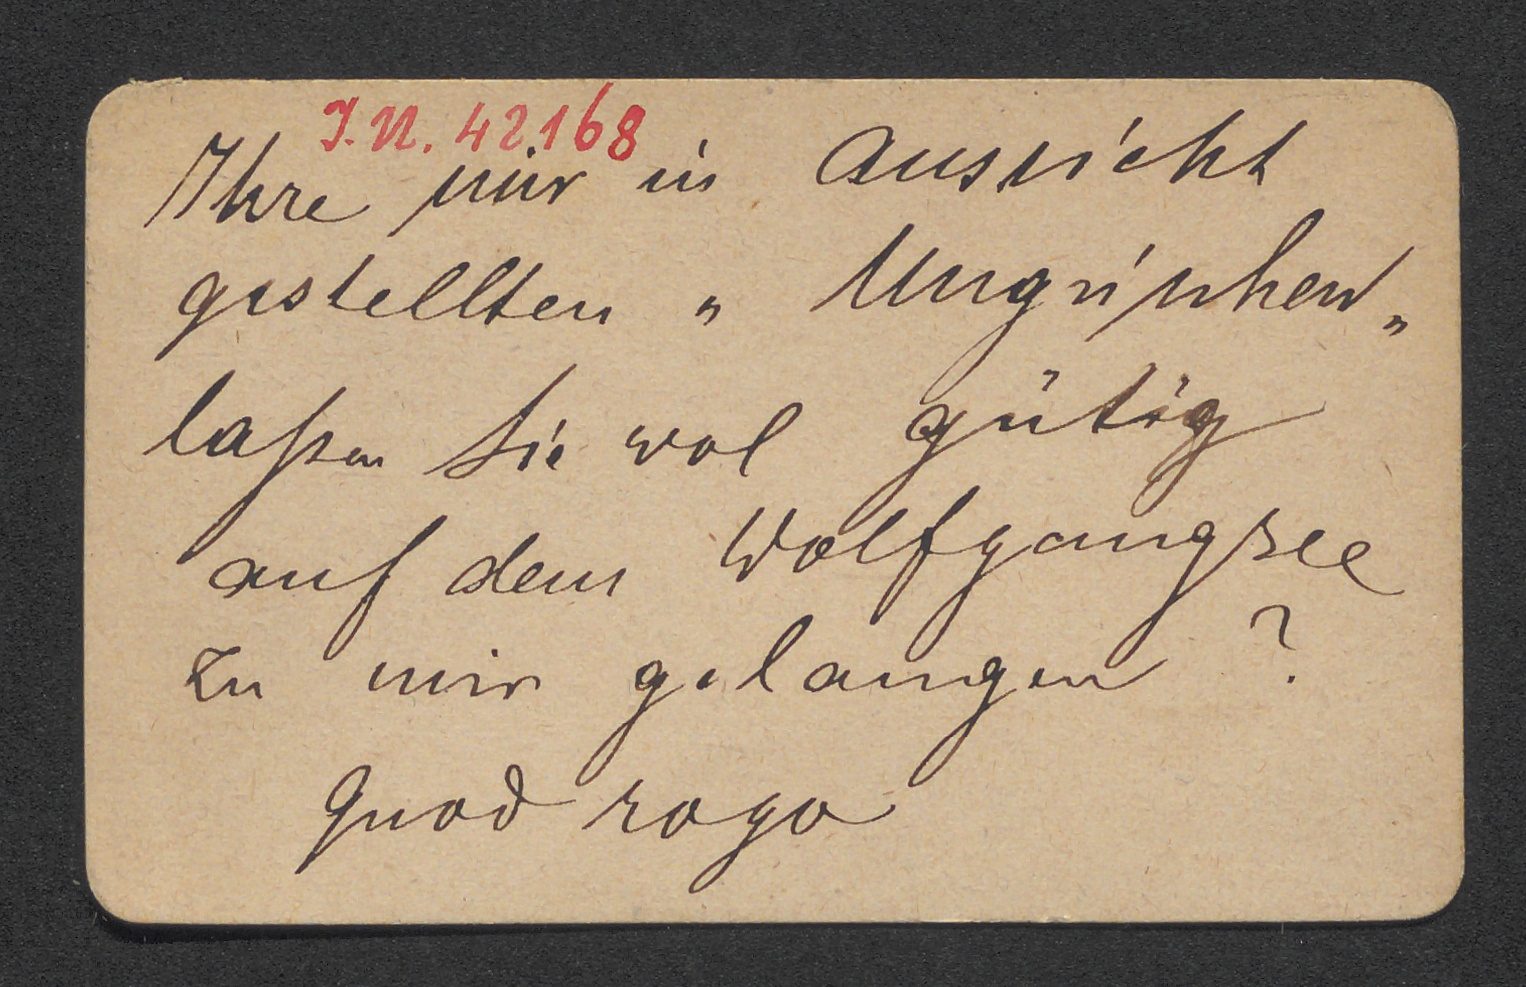 J.N. 42168
Ihre mir in Aussicht
gestellten „ Ungrischen „
laßen Sie wol gütig
auf dem Wolfgangsee
zu mir gelangen ?
Quod rogo